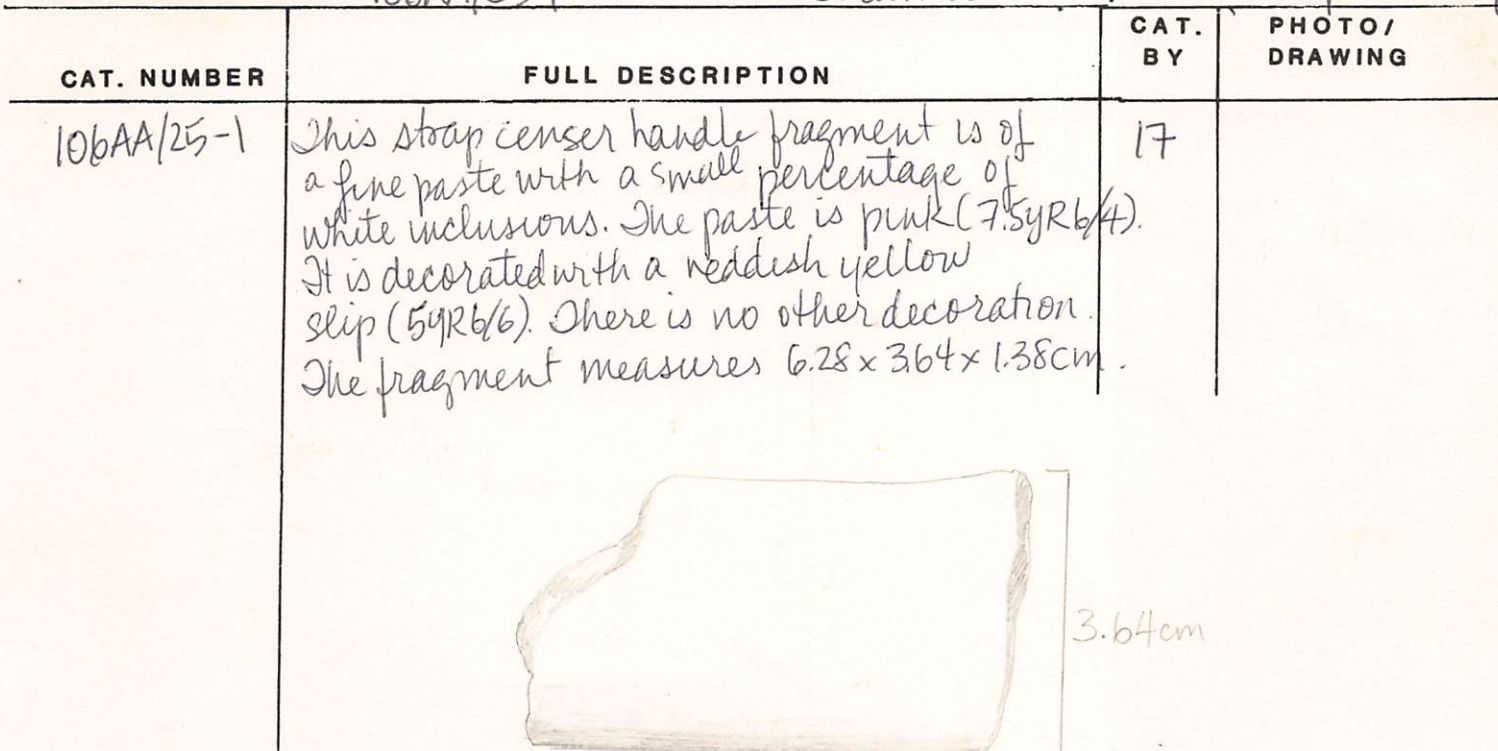 CAT. NUMBER FULL DESCRIPTION CAT. BY PHOTO/ DRAWING
106AA/25-1 This strap censer handle fragment is of 17
a fine paste with a small percentage of
white inclusions. The paste is pink (7.5yR 6/4).
It is decorated with a reddish yellow
slip (5yR 6/6). There is no other decoration.
The fragment measures 6.28 x 3.64 x 1.38cm.
3.64cm